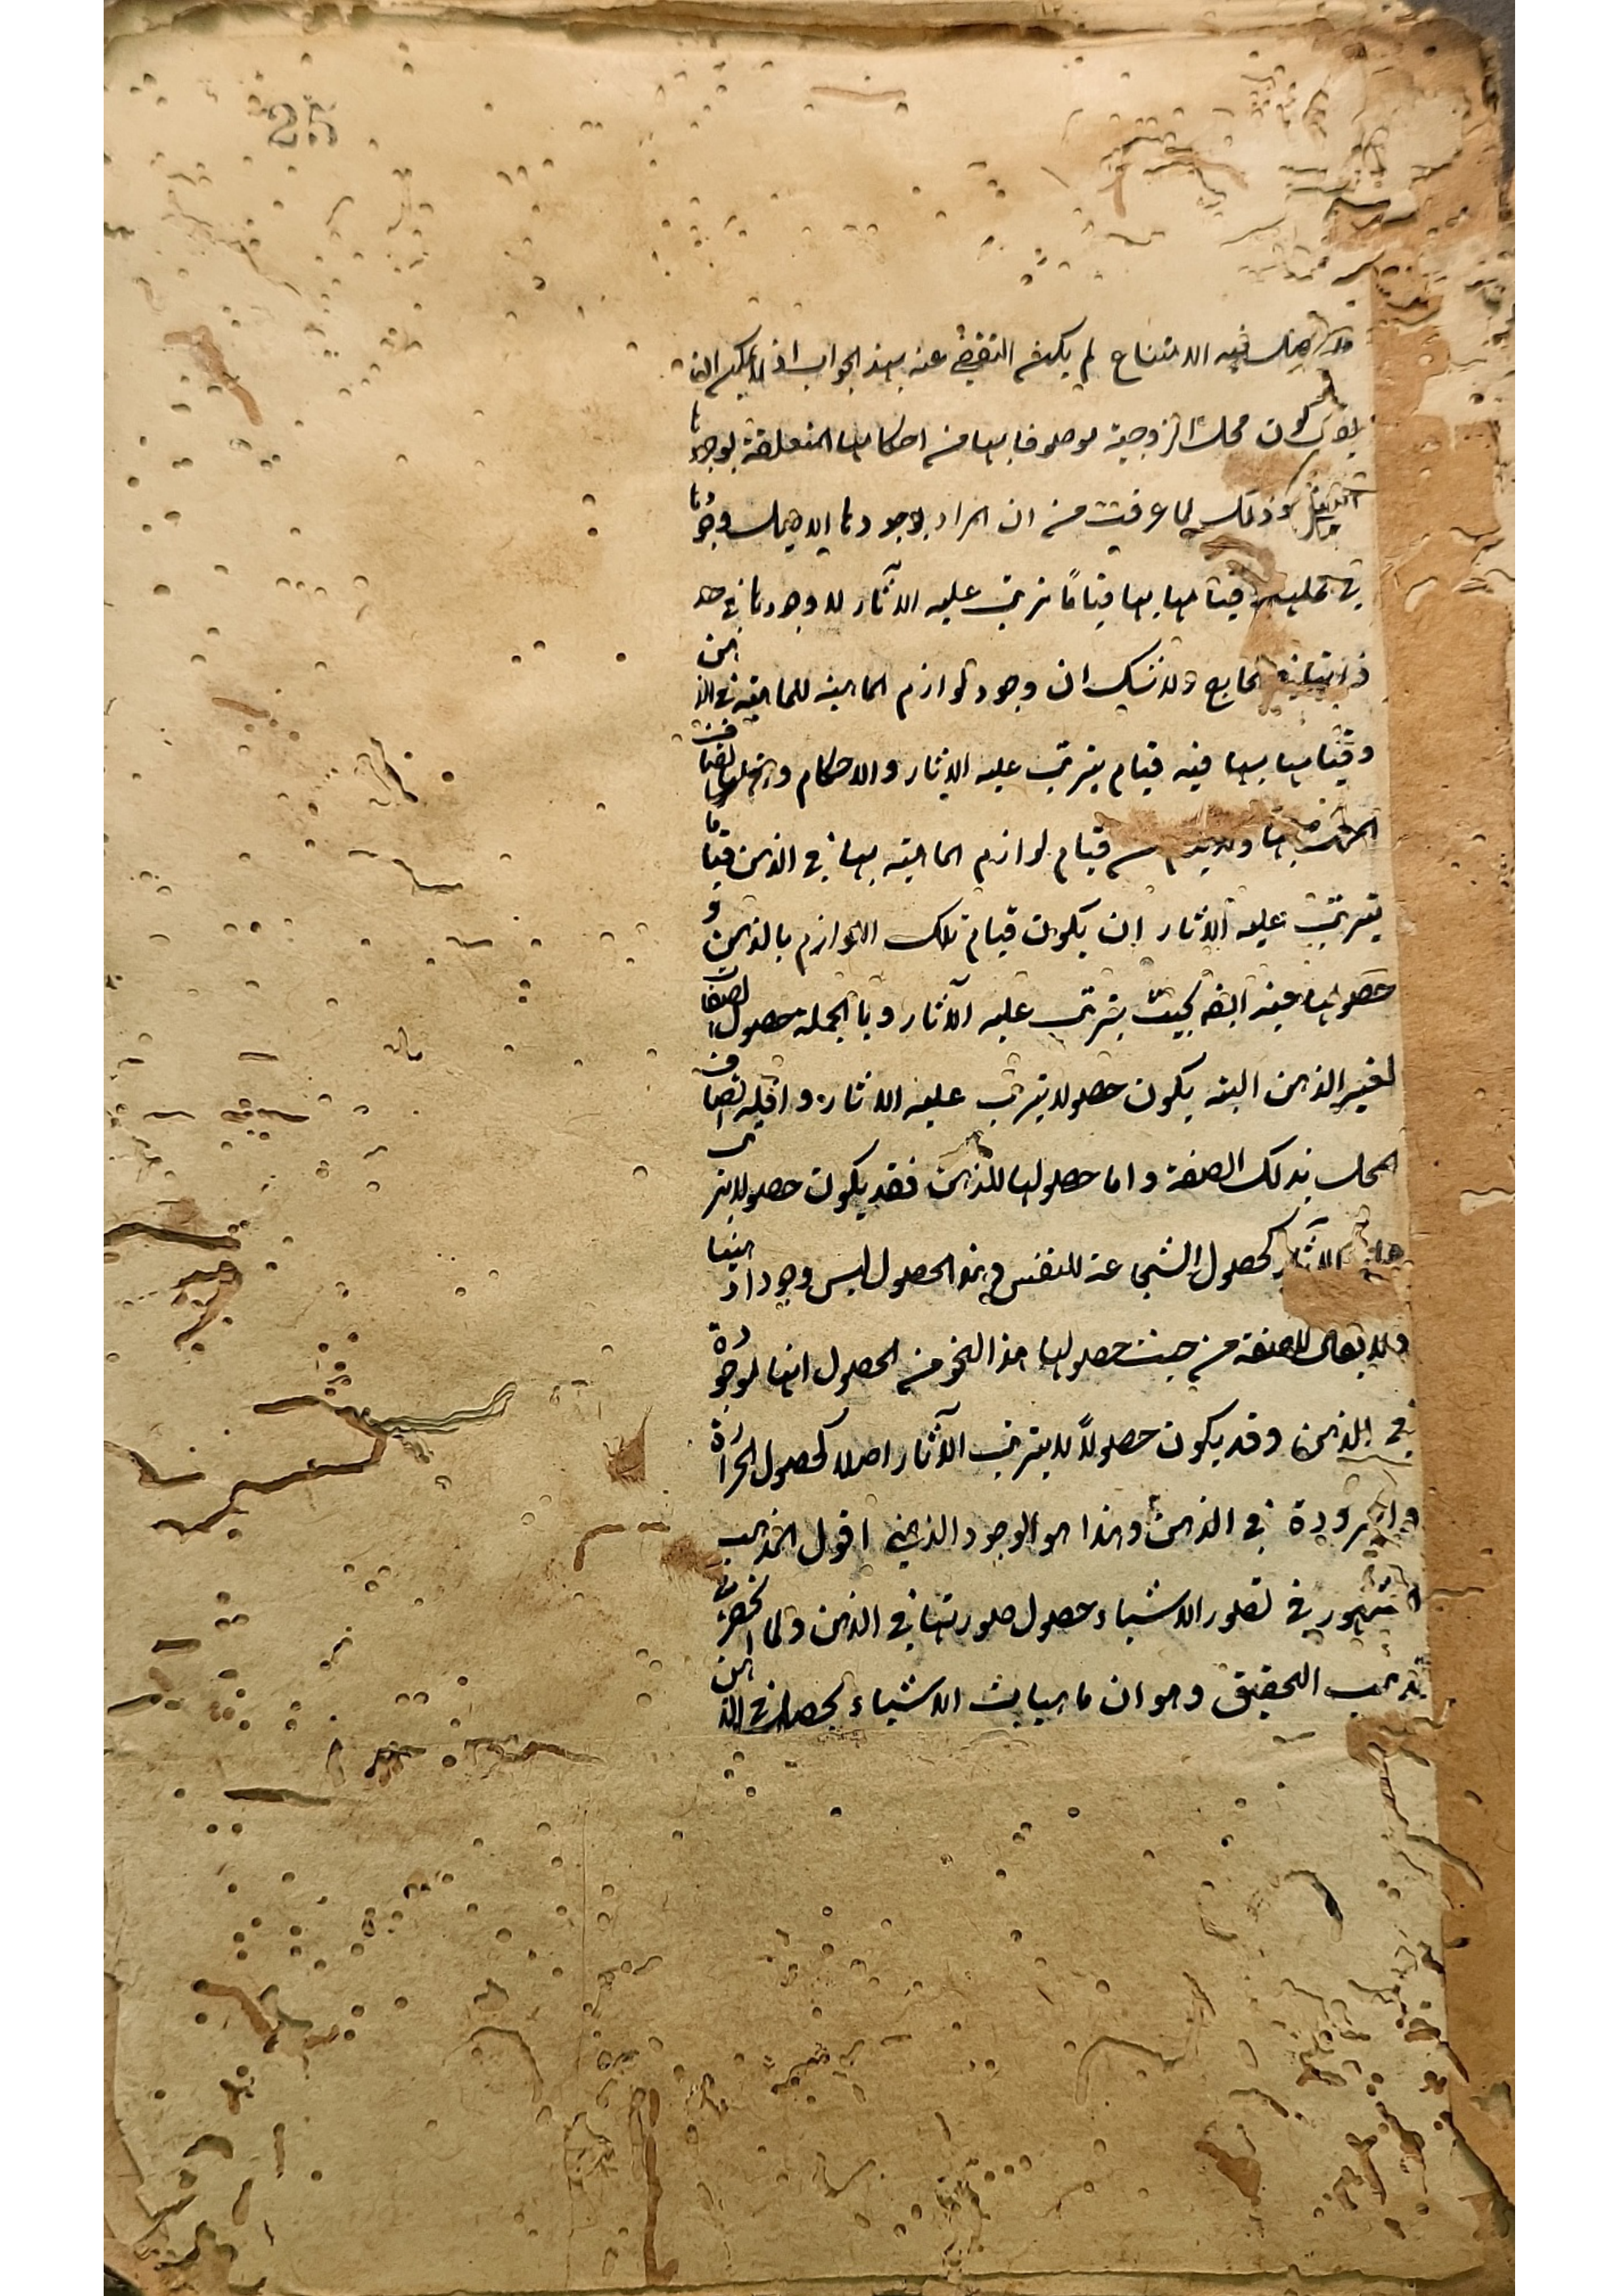 25
فيه الامتناع لم يكن التفصي عنه بهذا الجواب اذ لا يمكن ان
كون محل الزوجية موصوفا بها من احكامها المتعلقة بوجودها
كذلك لما عرفت من ان المراد بوجودها الاصيل وجودها
في محلها وقيامها بها قياماً يترتب عليه الآثار لا وجودها في حد
الخارج ولا شك ان وجود لوازم الماهية للماهية في الذهن
وقيامها بها فيه قيام يترتب عليه الآثار والاحكام واتصاف
بها قيام لوازم الماهية بها في الذهن قياما
يترتب عليه الآثار ان يكون قيام تلك اللوازم بالذهن و
حصولها فيه ايضا بحيث يترتب عليه الآثار وبالجملة حصول الصفات
لغير الذهن البتة يكون حصولا يترتب عليه الآثار واقله اتصاف
المحل بذلك الصفة واما حصولها للذهن فقد يكون حصولا يترتب
عليه الآثار كحصول الشجاعة للنفس وهذا الحصول ليس وجودا ذهنيا
ولا يقال للصفة من حيث حصولها هذا النحو من الحصول انها موجودة
في الذهن وقد يكون حصولاً لا يترتب الآثار اصلا كحصول الحرارة
والبرودة في الذهن وهذا هو الوجود الذهني اقول المذهب
المشهور في تصور الاشياء حصول صورتها في الذهن ولما
مذهب التحقيق وهو ان ماهيات الاشياء تحصل في الذهن